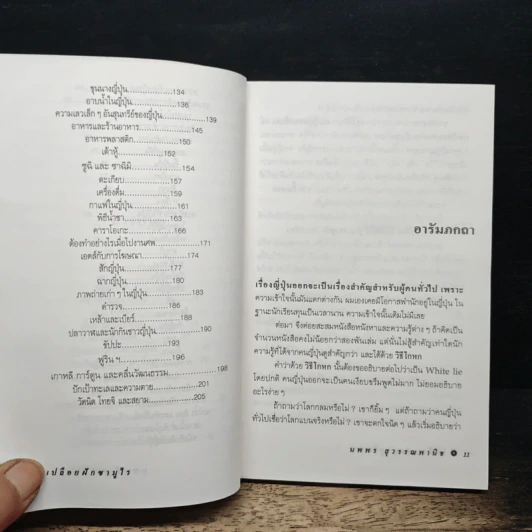 ขุนนางญี่ปุ่น..................134
อาบน้ำในญี่ปุ่น..................136
ความเลวเล็ก ๆ อันสุนทรีย์ของญี่ปุ่น..................139
อาหารและร้านอาหาร..................145
อาหารพลาสติก..................150
เต้าหู้..................152
ซูชิ และ ซาฉิมิ..................154
ตะเกียบ..................157
เครื่องดื่ม..................159
กาแฟในญี่ปุ่น..................161
พิธีน้ำชา..................163
คาราโอเกะ..................166
ต้องทำอย่างไรเมื่อไปงานศพ..................171
เอดส์กับการโฆษณา..................174
สักญี่ปุ่น..................177
ฉากญี่ปุ่น..................180
ภาพถ่ายเก่า ๆ ในญี่ปุ่น..................183
ตำรวจ..................186
เหล้าและเบียร์..................188
ปลาวาฬและนักกินชาวญี่ปุ่น..................190
ขัปปะ..................193
ฟูริน ฯ..................196
เกาหลี การ์ตูน และคลื่นวัฒนธรรม..................198
ปีกเป้าทะเลและความตาย..................201
วัตนิต โทยจิ และสยาม..................205
เปลือยฝักซามูไร
อารัมภกถา
เรื่องญี่ปุ่นออกจะเป็นเรื่องสำคัญสำหรับผู้คนทั่วไป เพราะ
ความเข้าใจนั้นมันแตกต่างกัน ผมเองเคยมีโอกาสพำนักอยู่ในญี่ปุ่น ใน
ฐานะนักเรียนทุนเป็นเวลานาน ความเข้าใจนั้นเดิมไม่มีเลย
ต่อมา จึงค่อยสะสมหนังสือหนังหาและความรู้ต่าง ๆ ถ้าคิดเป็น
จำนวนหนังสือคงไม่น้อยกว่าสองพันเล่ม แต่นั่นไม่สู้สำคัญเท่าใดนัก
ความรู้ที่ได้จากคนญี่ปุ่นดูสำคัญกว่า และได้ด้วย วิธีโกหก
คำว่าด้วย วิธีโกหก นั้นต้องขออธิบายต่อไปว่าเป็น White lie
โดยปกติ คนญี่ปุ่นออกจะเป็นคนเงียบขรึมพูดไม่มาก ไม่ยอมอธิบาย
อะไรง่าย ๆ
ถ้าถามว่าโลกกลมหรือไม่ ? เขาก็ยิ้ม ๆ แต่ถ้าถามว่าคนญี่ปุ่น
ทั่วไปเชื่อว่าโลกแบนจริงหรือไม่ ? เขาจะตกใจนิด ๆ แล้วเริ่มอธิบายว่า
นพพร สุวรรณพานิช 11